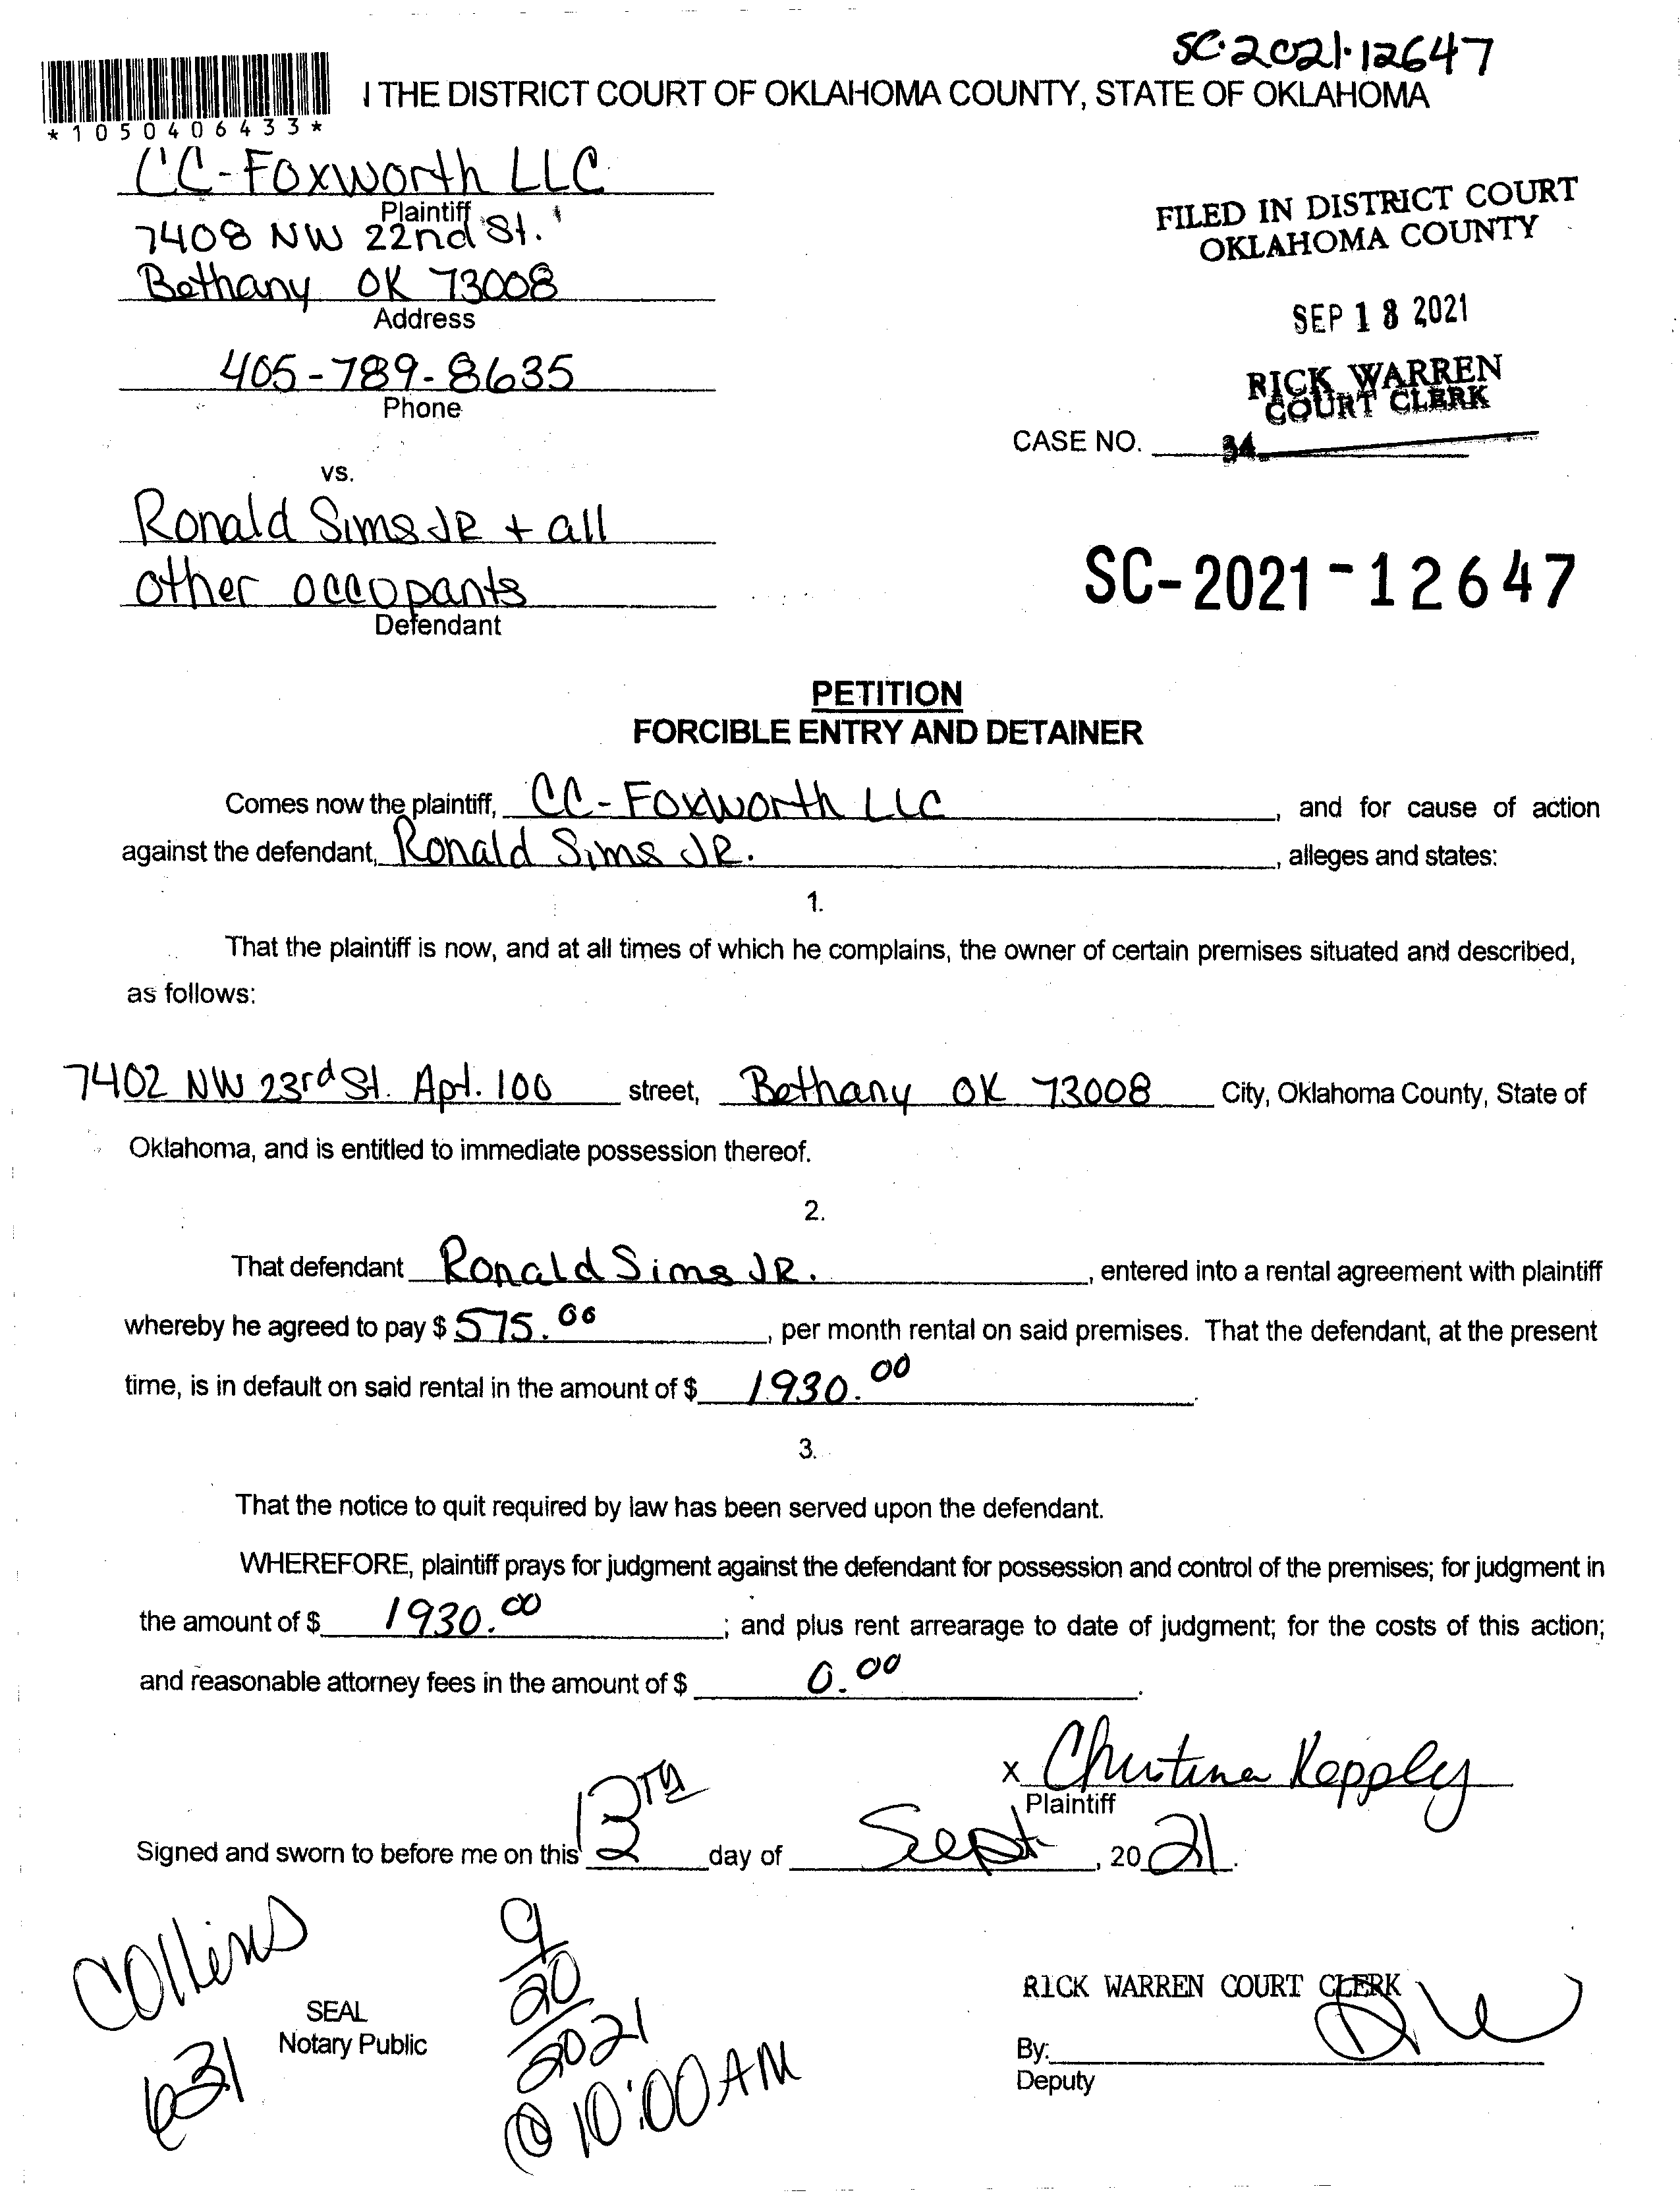 SC-2021-12647
*1050406433*
I THE DISTRICT COURT OF OKLAHOMA COUNTY, STATE OF OKLAHOMA
CC-Foxworth LLC
Plaintiff
7408 NW 22nd St.
Bethany OK 73008
Address
405-789-8635
Phone
FILED IN DISTRICT COURT
OKLAHOMA COUNTY
SEP 13 2021
RICK WARREN
COURT CLERK
CASE NO. 34
vs.
Ronald Sims JR + all
other occupants
Defendant
SC-2021-12647
PETITION
FORCIBLE ENTRY AND DETAINER
Comes now the plaintiff, CC-Foxworth LLC, and for cause of action
against the defendant, Ronald Sims JR., alleges and states:
1.
That the plaintiff is now, and at all times of which he complains, the owner of certain premises situated and described,
as follows:
7402 NW 23rd St. Apt. 100 street, Bethany OK 73008 City, Oklahoma County, State of
Oklahoma, and is entitled to immediate possession thereof.
2.
That defendant Ronald Sims JR., entered into a rental agreement with plaintiff
whereby he agreed to pay $ 575.00, per month rental on said premises. That the defendant, at the present
time, is in default on said rental in the amount of $ 1930.00.
3.
That the notice to quit required by law has been served upon the defendant.
WHEREFORE, plaintiff prays for judgment against the defendant for possession and control of the premises; for judgment in
the amount of $ 1930.00; and plus rent arrearage to date of judgment; for the costs of this action;
and reasonable attorney fees in the amount of $ 0.00.
X Christina Kepply
Plaintiff
Signed and sworn to before me on this 13TH day of Sept, 2021.
Collins
631
SEAL
Notary Public
9/20/2021
@ 10:00 AM
RICK WARREN COURT CLERK
By:
Deputy